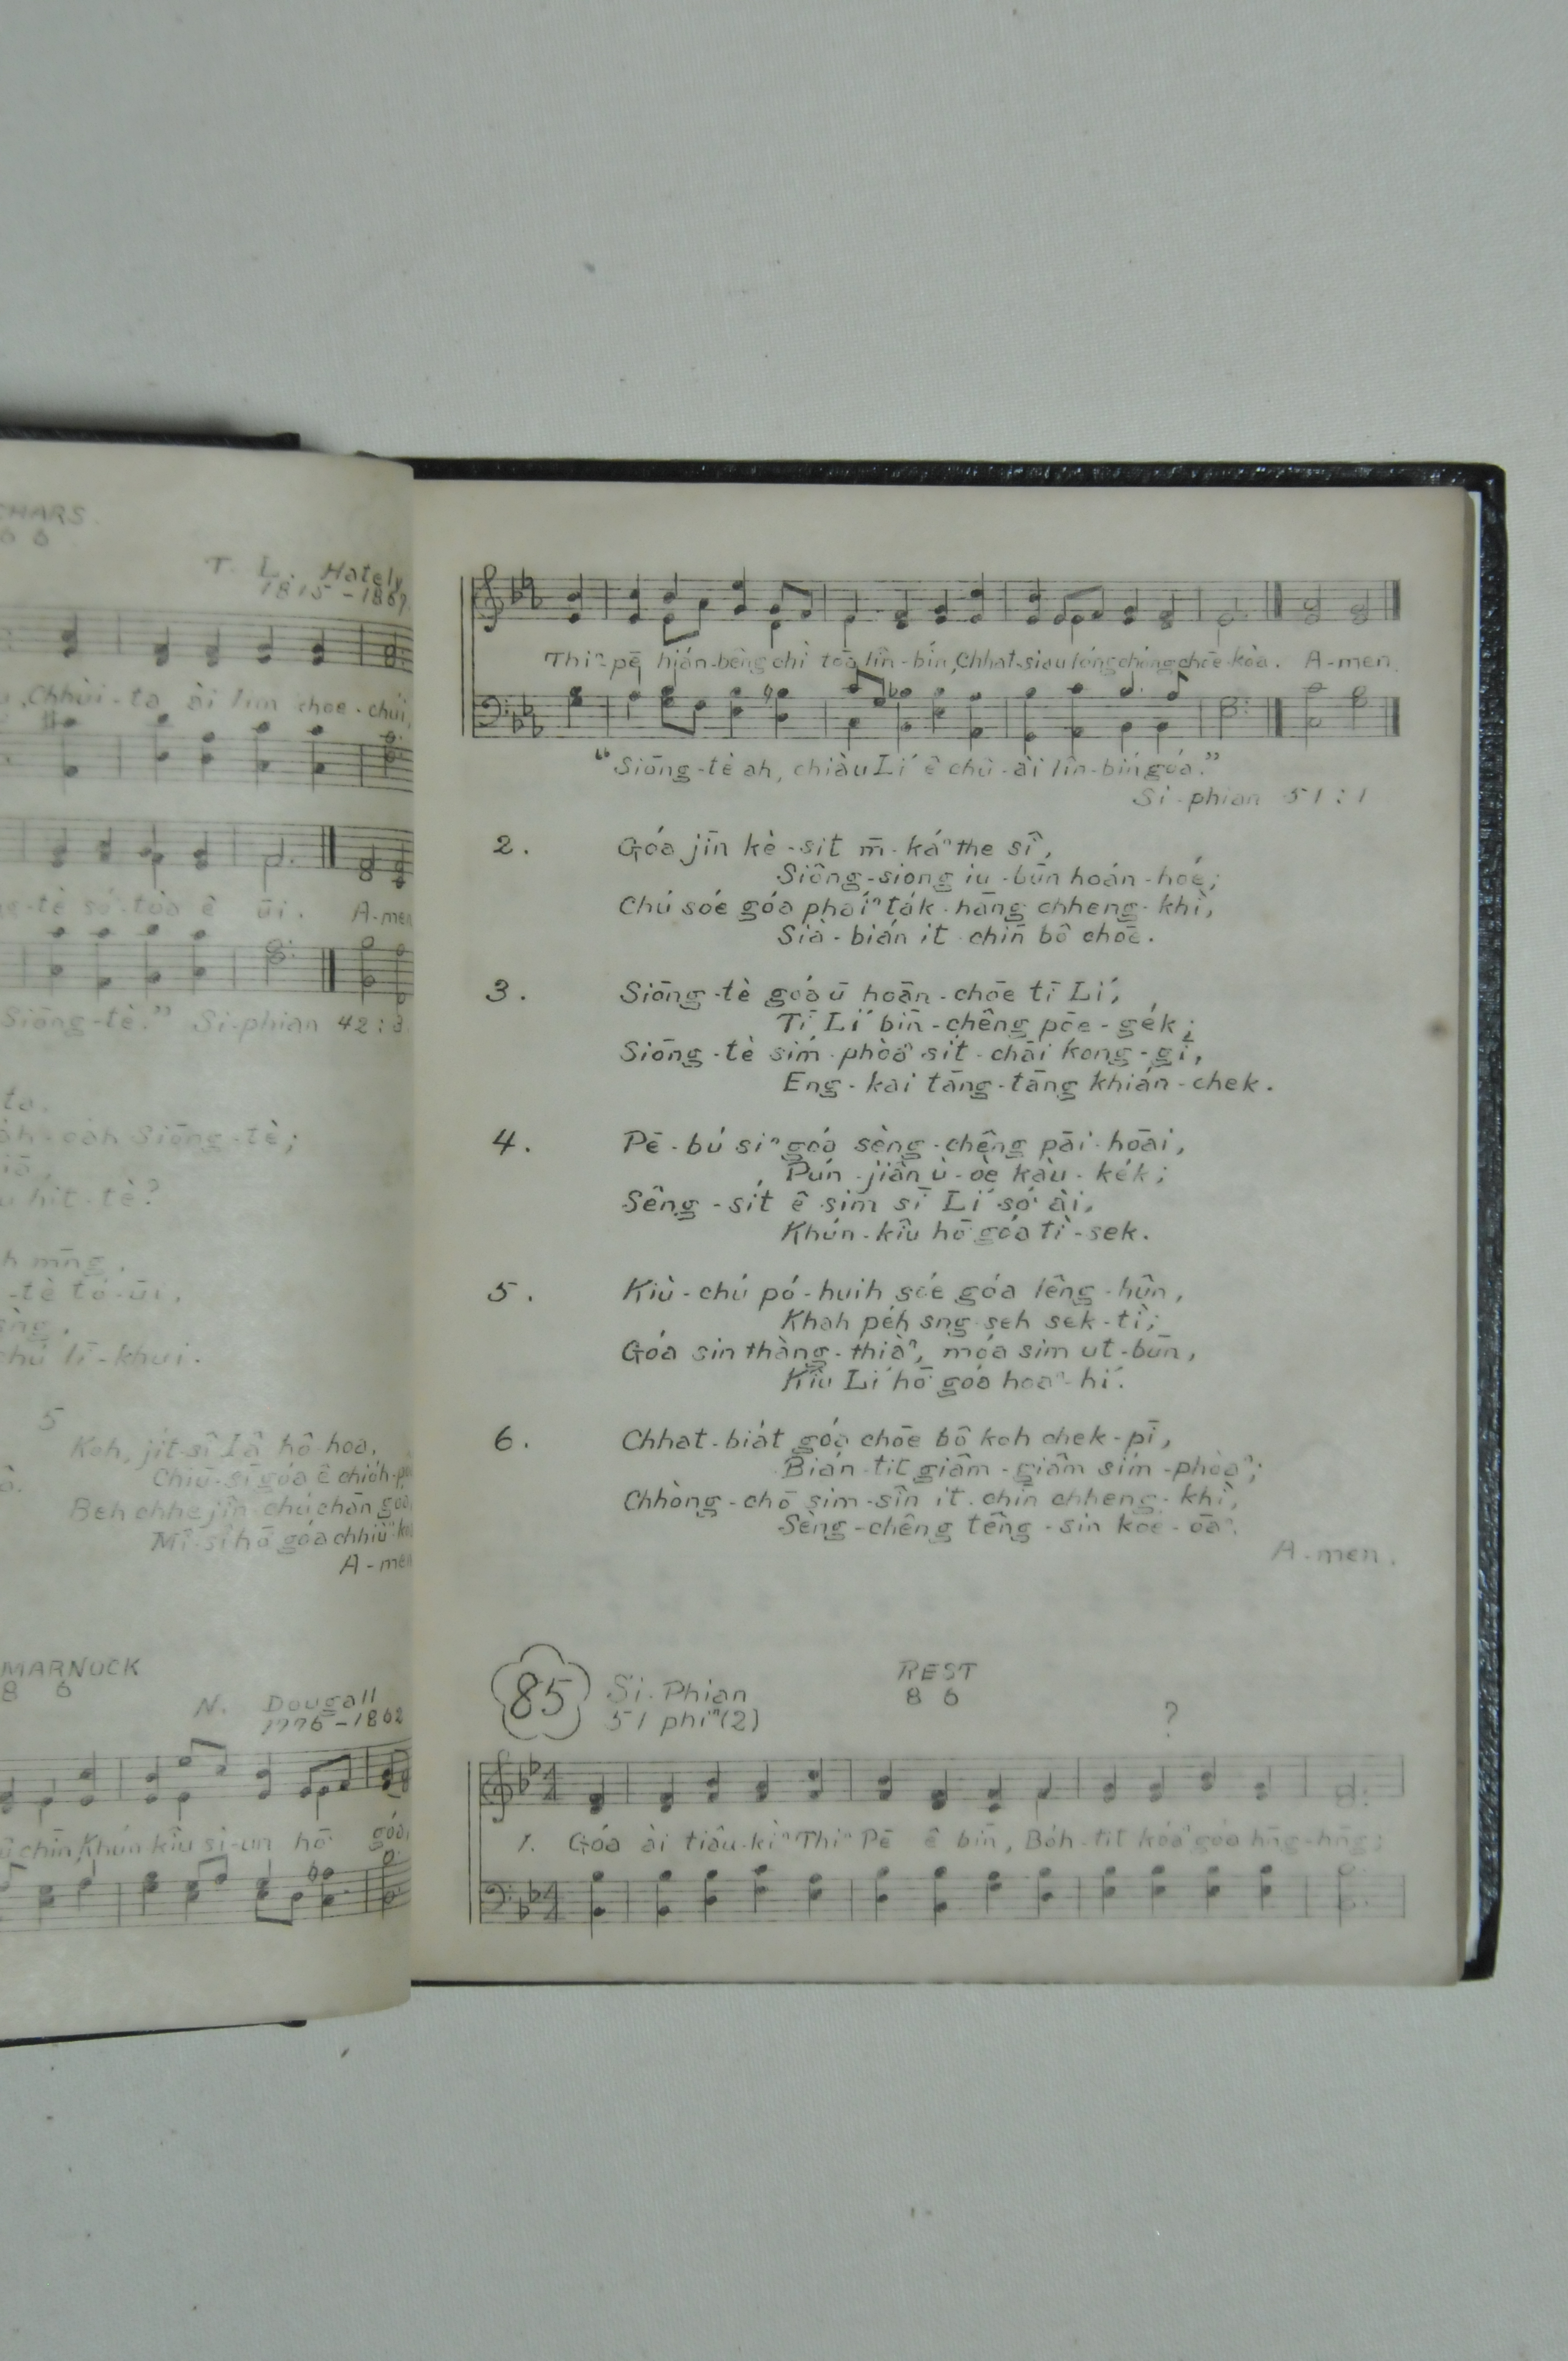 CHARS.
6 6
T. L. Hately
1815-1867
Chhùi-ta ài lim choe-chúi,
só͘-tòa ê ūi. A-men
Siōng-tè.” Si-phian 42:3.
ta.
Siōng-tè;
hit-tè?
h mn̄g,
-tè tó-ūi,
chú lī-khui.
5
Koh, jit-sî Iâ hô-hoa,
Chiū-sī góa ê chio̍h-pôa
Beh chhe jîn-chú chān góa
Mî-sî hō͘ góa chhiùⁿ-koa
A-men
MARNUCK
8 6
N. Dougall
1776-1862
chīn, Khún-kiû sì-un hō͘ góa,
Thiⁿ-pē hián-bêng chì toā lîn-bín, Chhat-siau lóng-chóng chōe-kòa. A-men.
“Siōng-tè ah, chiàu Lí ê chû-ài lîn-bín góa.”
Si-phian 51:1
2. Góa jīn kè-sit m̄-káⁿ the sî,
Siông-siong iu-būn hoán-hoé;
Chú sóe góa pháiⁿ ta̍k-hāng chheng-khì,
Sià-bián it-chīn bô chōe.
3. Siōng-tè góa ū hoān-chōe tī Lí,
Tī Lí bīn-chêng pōe-ge̍k;
Siōng-tè sím-phòaⁿ si̍t-chāi kong-gī,
Eng-kai tāng-tāng khián-chek.
4. Pē-bú siⁿ góa sèng-chêng pāi-hoāi,
Pún-jiân ù-òe kàu-ke̍k;
Sêng-si̍t ê sim sī Lí só͘ ài,
Khún-kiû hō͘ góa tì-sek.
5. Kiù-chú pó-huih sóe góa lêng-hûn,
Khah pe̍h sng seh sek-tì;
Góa sin thàng-thiàⁿ, móa sim ut-būn,
Kiû Lí hō͘ góa hoaⁿ-hí.
6. Chhat-bia̍t góa chōe bô koh chek-pī,
Bián-tit giâm-giâm sím-phòaⁿ;
Chhòng-chō sim-sîn it-chīn chheng-khì,
Sèng-chêng têng-sin koe-ōaⁿ.
A-men.
85 Si-Phian REST
51 phiⁿ (2) 8 6 ?
1. Góa ài tiâu-kìⁿ Thiⁿ Pē ê bīn, Bo̍h-tit kóaⁿ góa hn̄g-hn̄g;